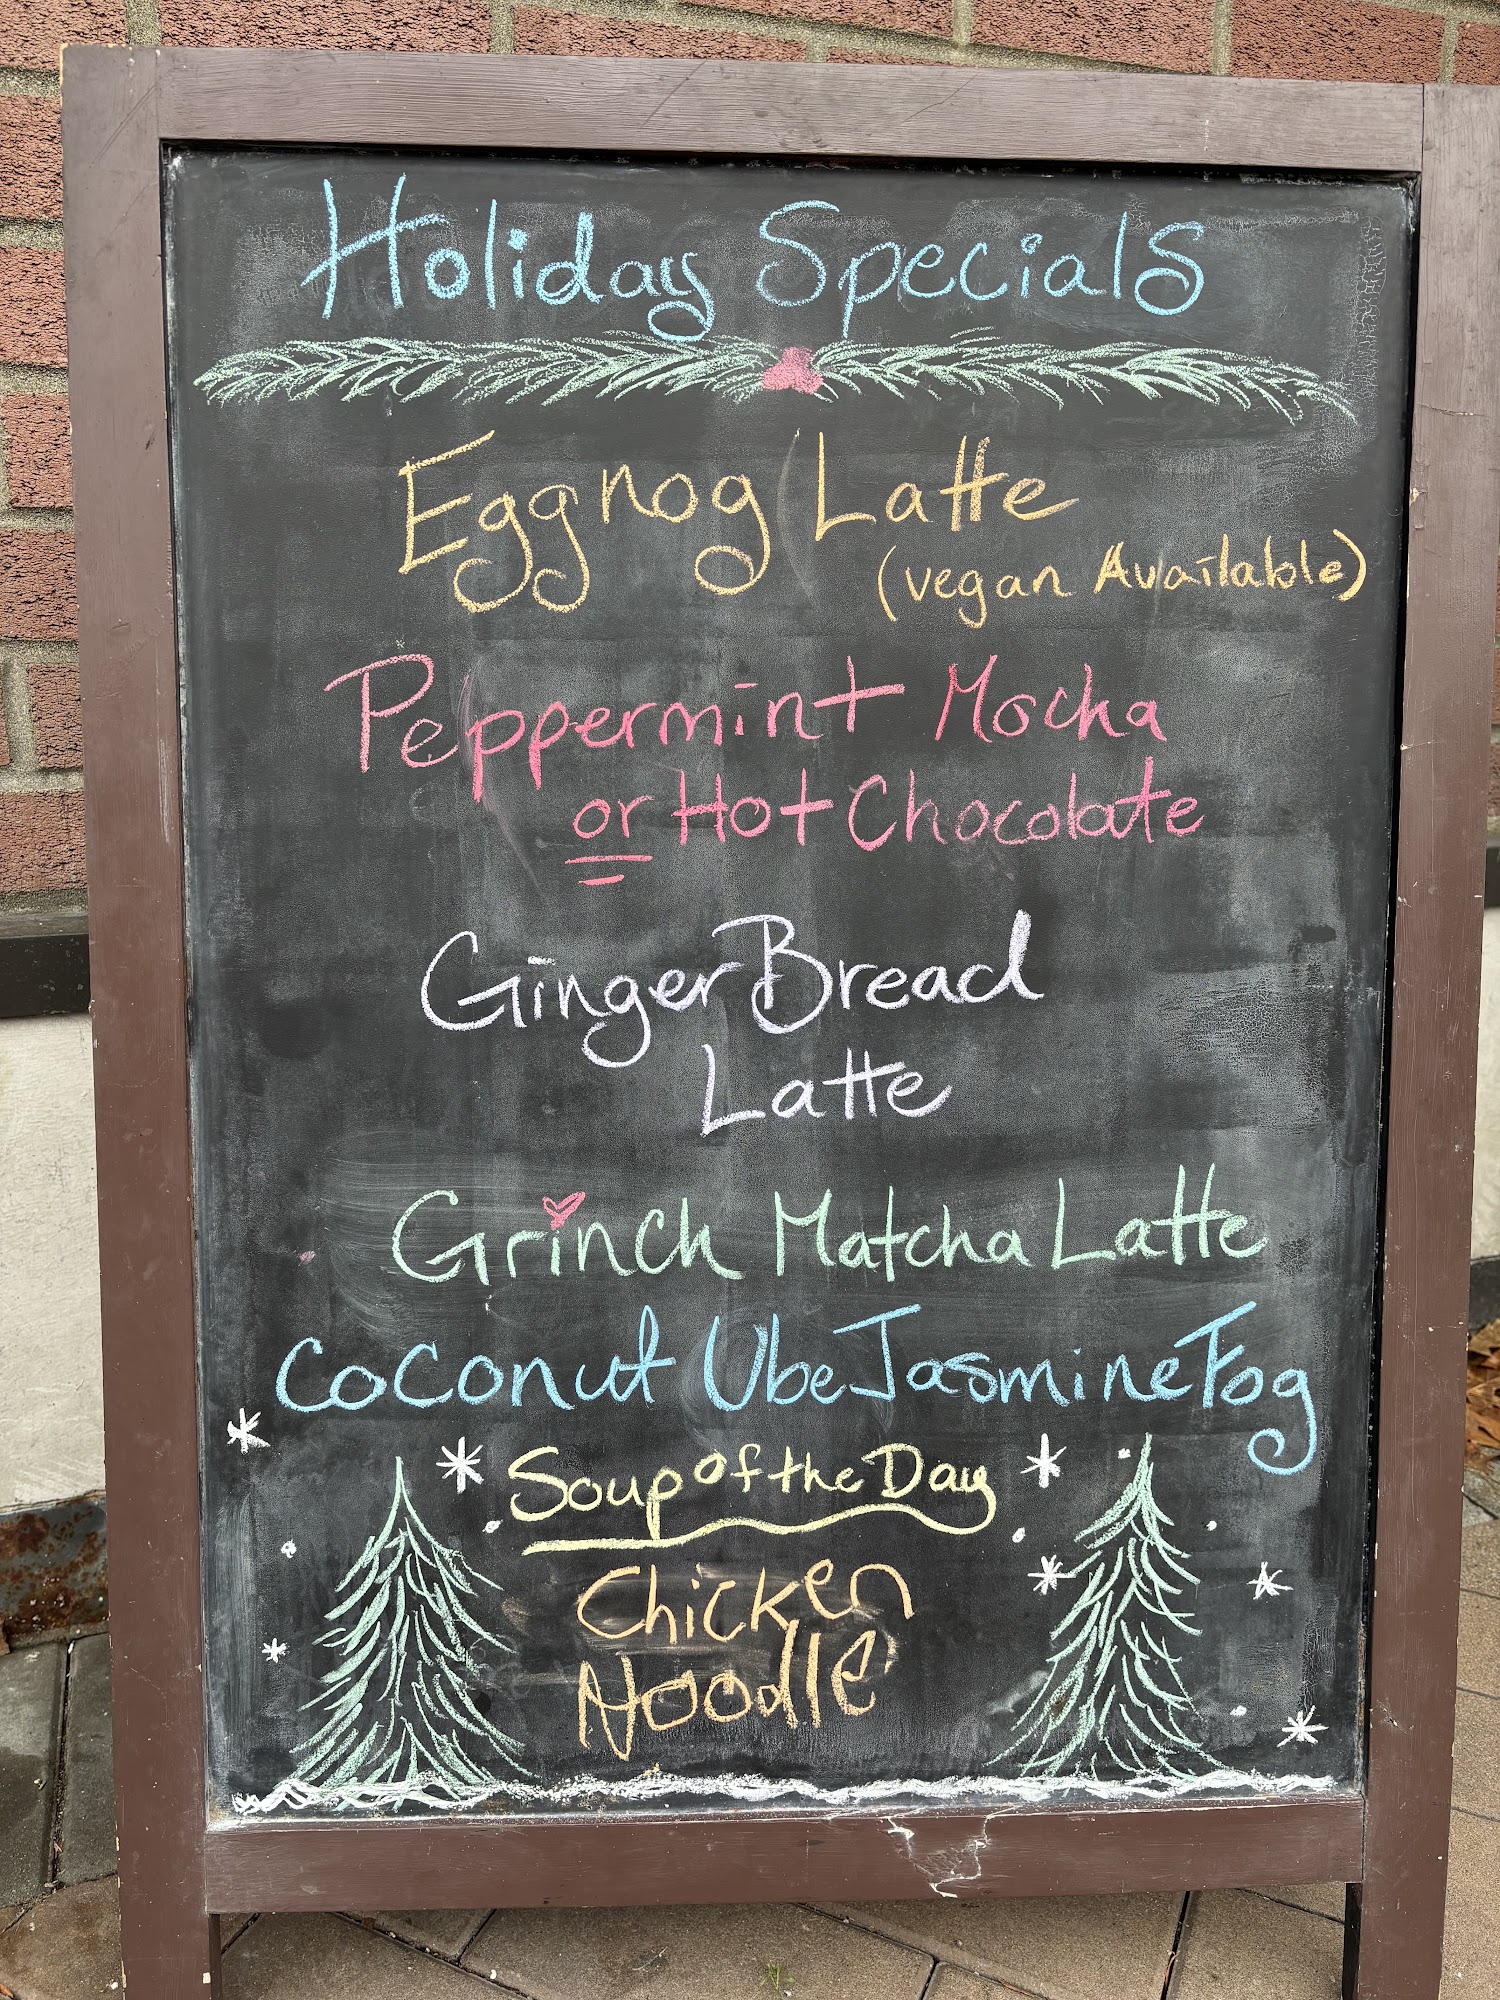 Holiday Specials
Eggnog Latte
(vegan Available)
Peppermint Mocha
or Hot Chocolate
GingerBread
Latte
Grinch Matcha Latte
Coconut Ube Jasmine Fog
Soup of the Day
Chicken
Noodle